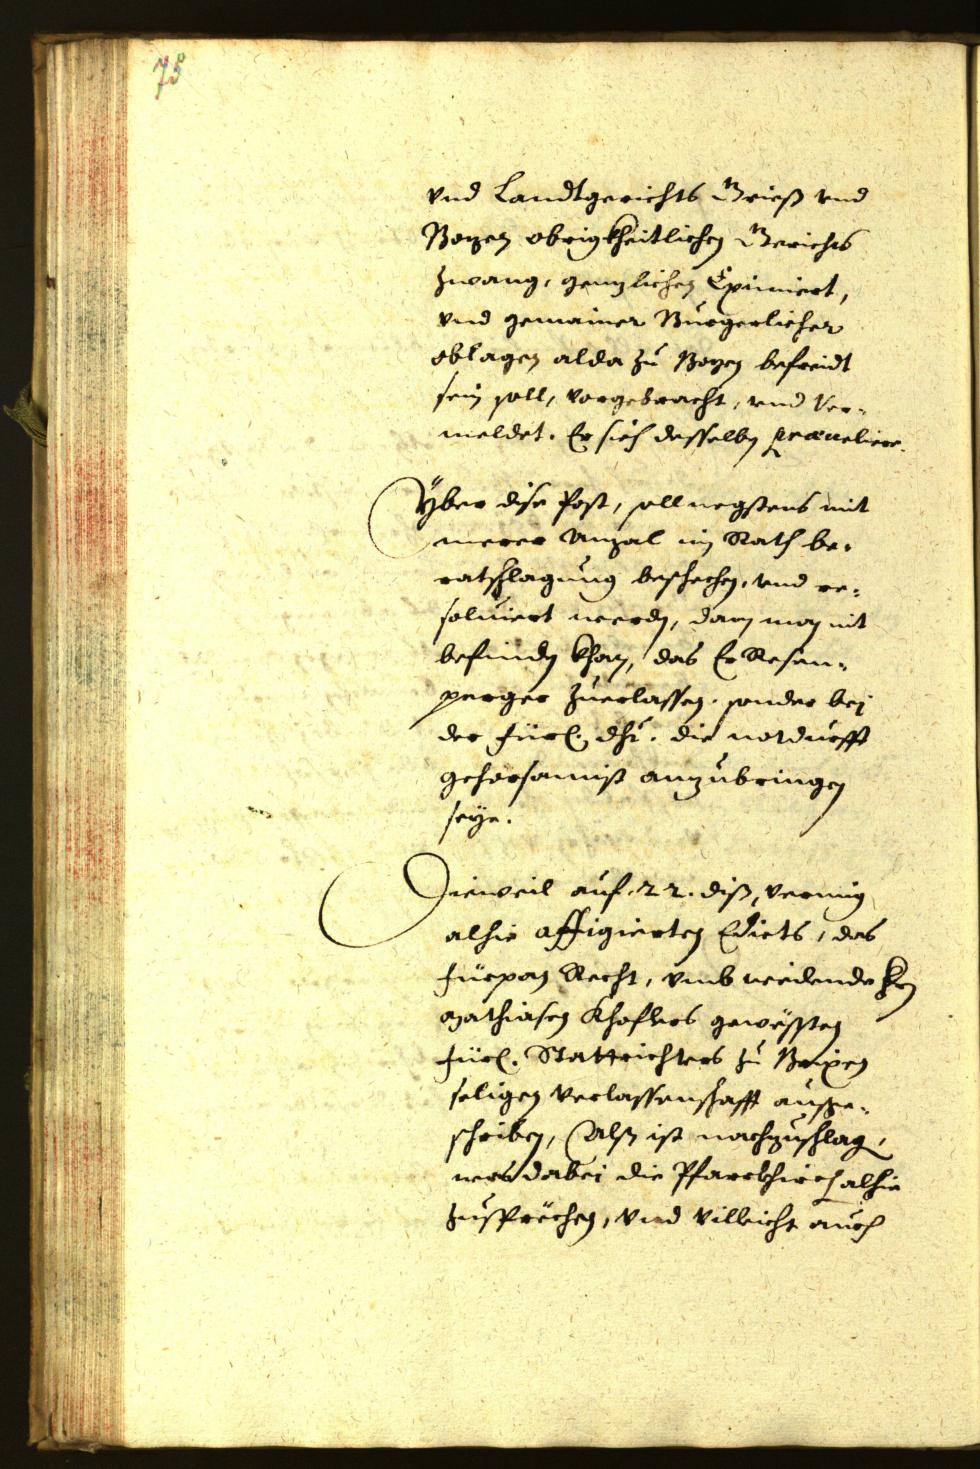 75
vnd Landtgerichts Grieß vnd
Bozen obrigkheitlichen Gerichts
zwang, genzlichen Eximiert,
vnd gemainer Burgerlicher
oblagen alda zu Bozen befreidt
sein soll, vorgebracht, vnd ver-
meldet. Er sich desselben praevaliere.
Yber dise Post, soll negstens mit
merer Anzal im Rath be-
ratschlagung beschechen, vnd re-
solviert werden, dann man nit
befinden khan, das Er Rosen-
perger zuerlassen, sonder bej
der Fürl: dht: die notdurfft
gehorsamist anzubringen
seye.
Dieweil auf 22. diß, vermüg
alhie affigierten Edicts, das
fürpan Recht, vmb weilende
Mathiasen Khoflers gewesten
Fürl: Stattrichters zu Brixen
seligen Verlassenschafft aussge-
schriben, Alß ist nachzuschlag,
was dabei die Pfarrkhirch alhie
zusprechen, vnd villeicht auch